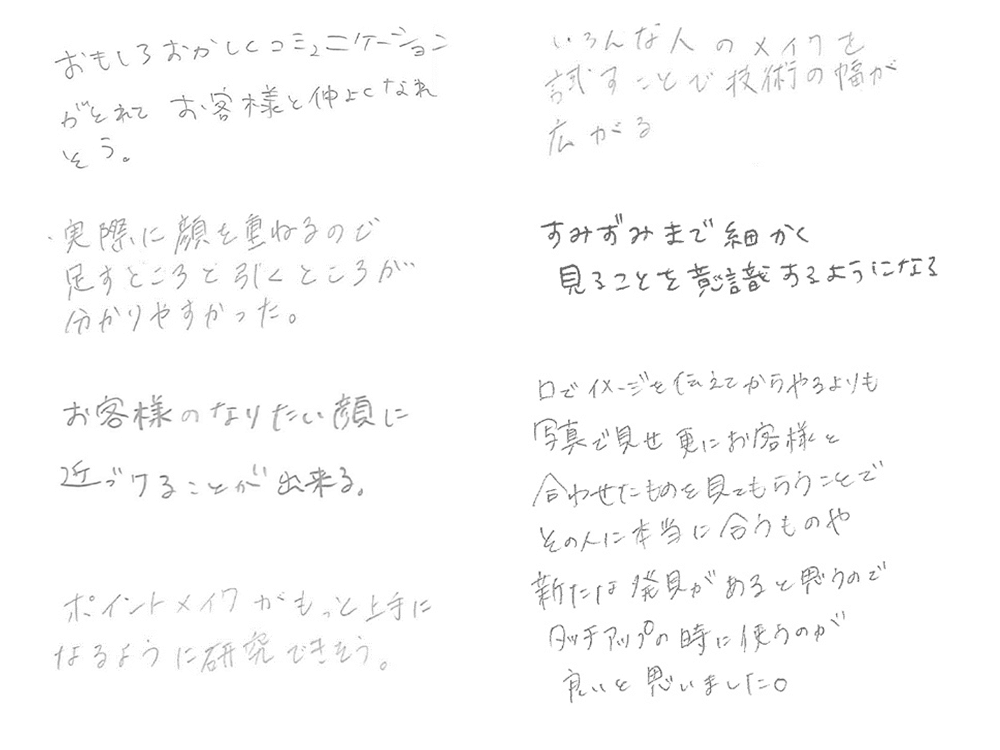 おもしろおかしくコミュニケーション
がとれて お客様と仲よくなれ
そう。
・実際に顔を重ねるので
足すところと引くところが
分かりやすかった。
お客様のなりたい顔に
近づけることが出来る。
ポイントメイクがもっと上手に
なるように研究できそう。
いろんな人のメイクを
試すことで技術の幅が
広がる
すみずみまで細かく
見ることを意識するようになる
口でイメージを伝えてからやるよりも
写真で見せ更にお客様と
合わせたものを見てもらうことで
その人に本当に合うものや
新たな発見があると思うので
タッチアップの時に使うのが
良いと思いました。